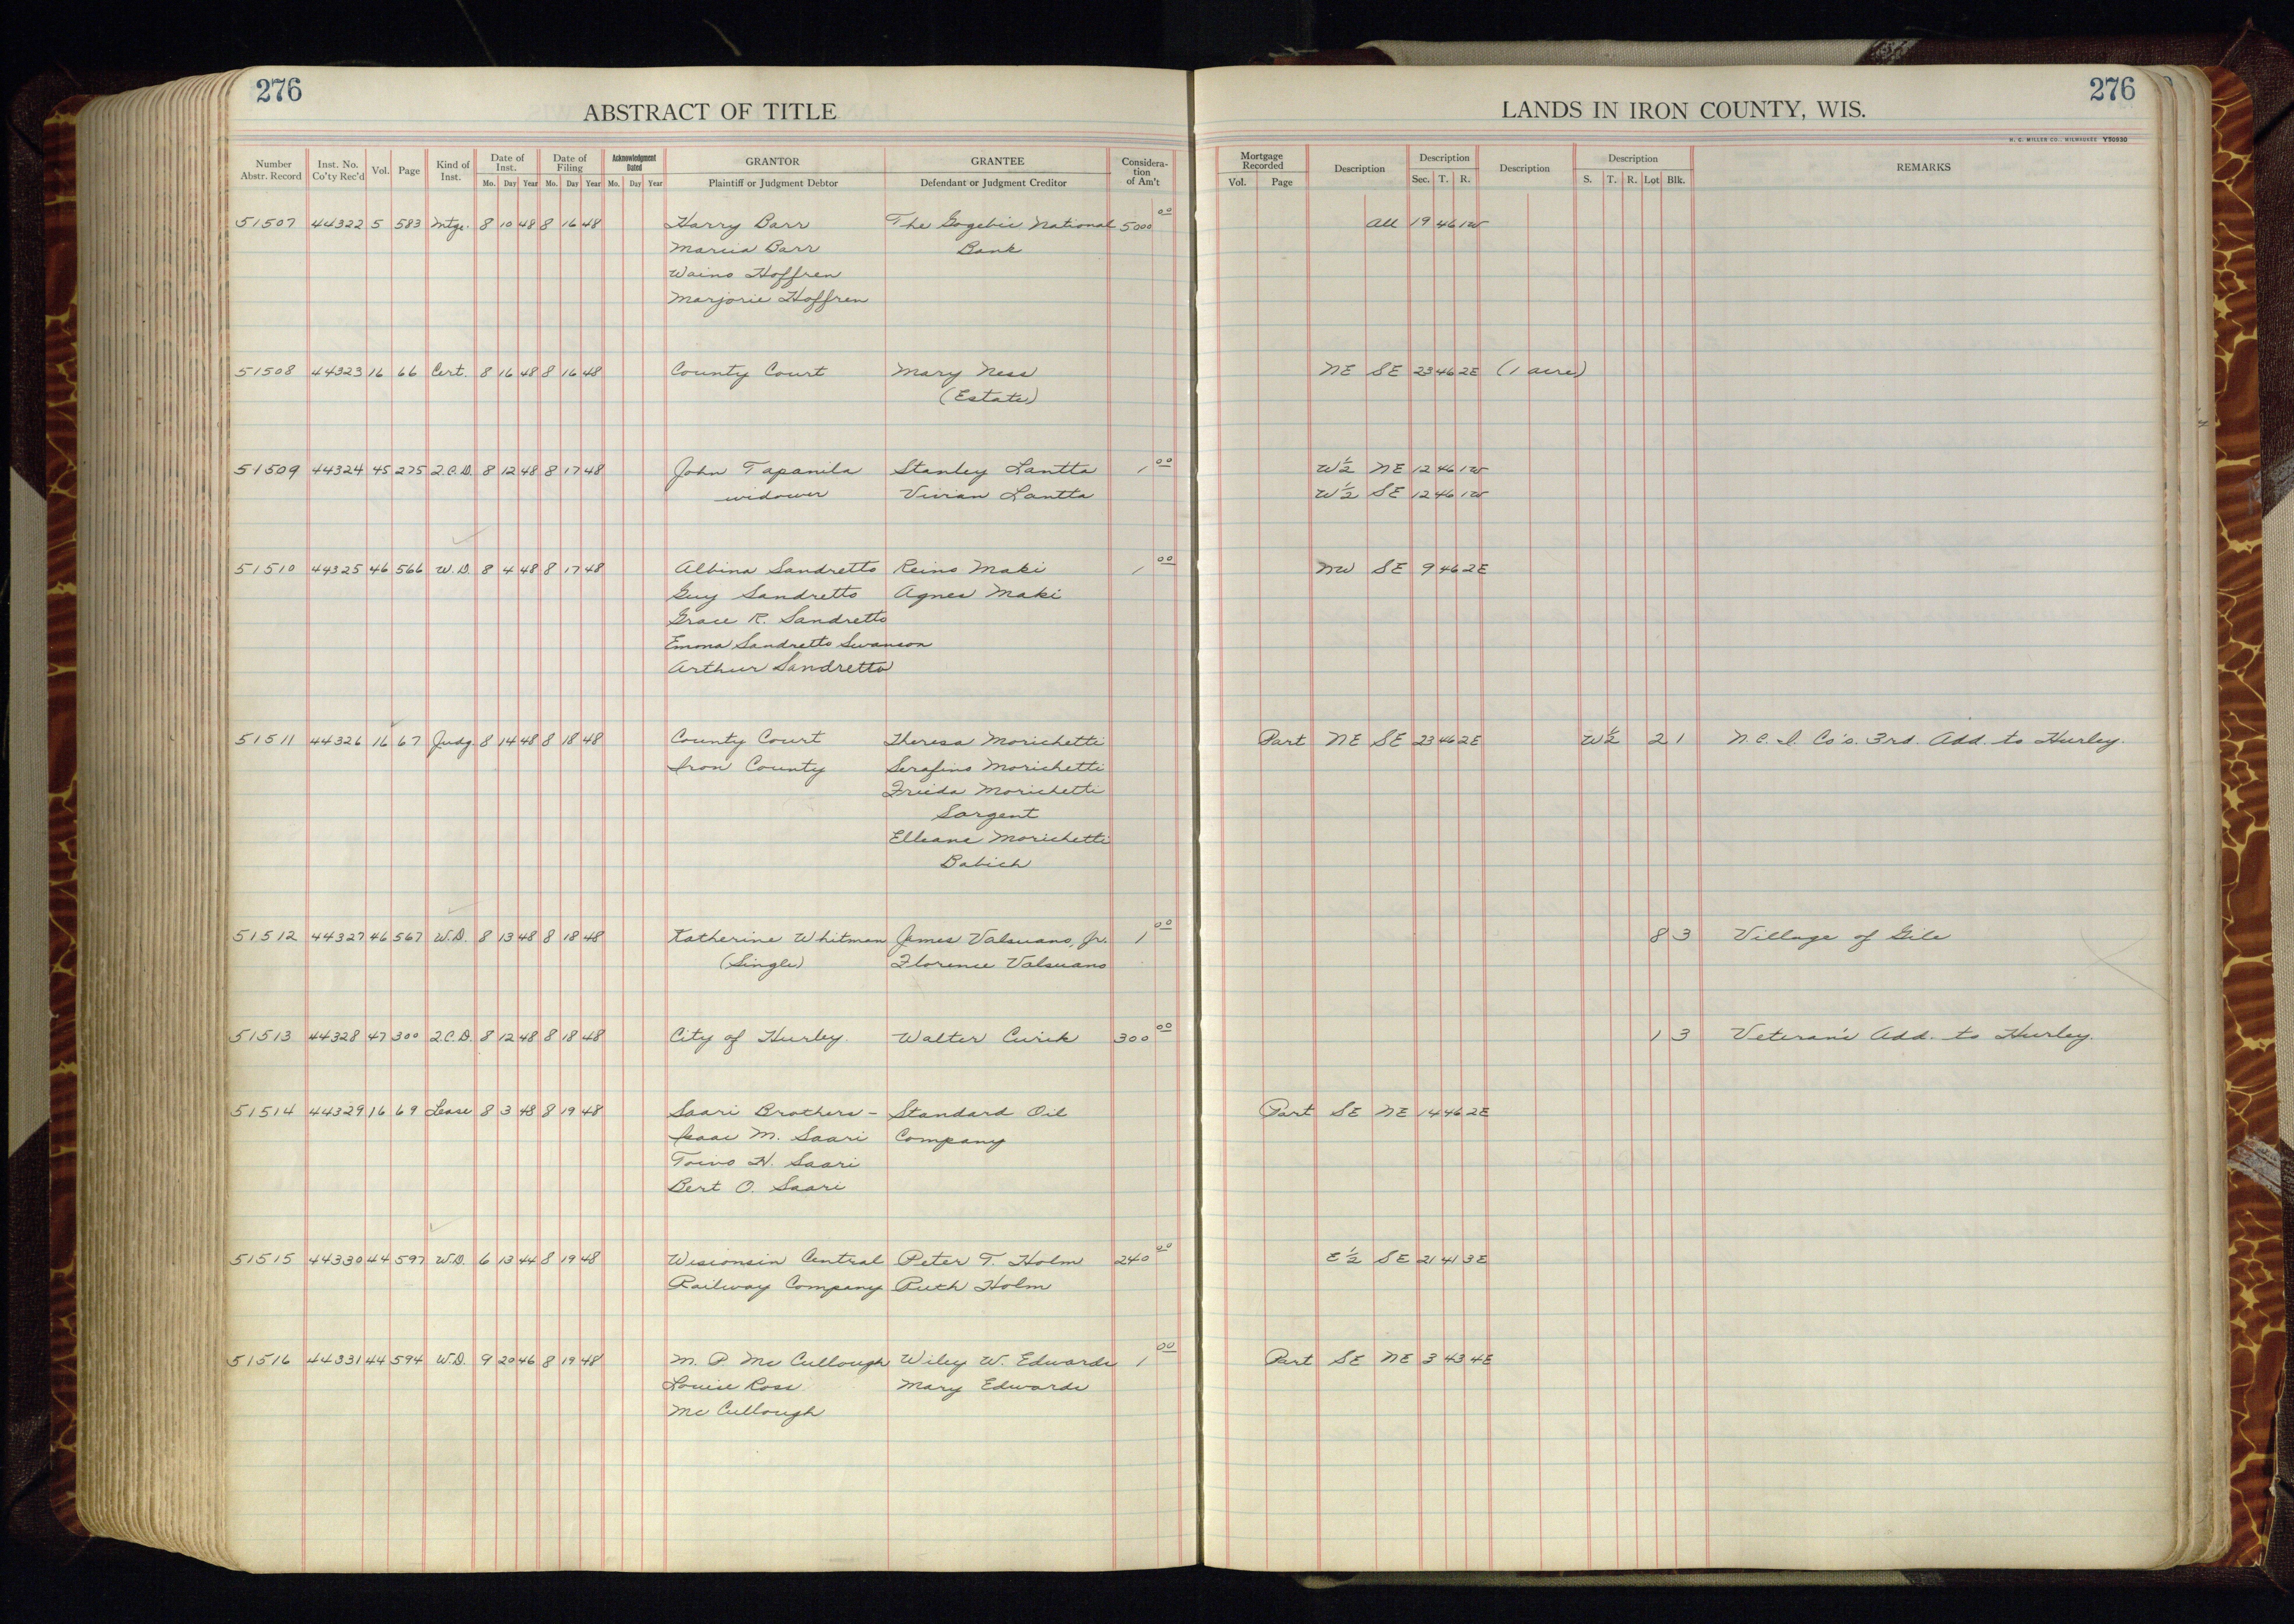 276
ABSTRACT OF TITLE
Number Abstr. Record Inst. No. Co'ty Rec'd Vol. Page Kind of Inst. Date of Inst. Mo. Day Year Date of Filing Mo. Day Year Acknowledgment Dated Mo. Day Year GRANTOR Plaintiff or Judgment Debtor GRANTEE Defendant or Judgment Creditor Considera-tion of Am't
276
LANDS IN IRON COUNTY, WIS.
H. C. MILLER CO., MILWAUKEE Y50930
Mortgage Recorded Vol. Page Description Description Sec. T. R. Description Description S. T. R. Lot Blk. REMARKS
51507 44322 5 583 Mtge. 8 10 48 8 16 48 Harry Barr The Gogebic National 5000 00 All 19 46 1W
Marcia Barr Bank
Waino Hoffren
Marjorie Hoffren
51508 44323 16 66 Cert. 8 16 48 8 16 48 County Court Mary Ness NE SE 23 46 2E (1 acre)
(Estate)
51509 44324 45 275 2.C.D. 8 12 48 8 17 48 John Tapanila Stanley Lantta 1 00 W½ NE 12 46 1W
widower Vivian Lantta W½ SE 12 46 1W
51510 44325 46 566 W.D. 8 4 48 8 17 48 Albina Sandretto Reino Maki 1 00 NW SE 9 46 2E
Guy Sandretto Agnes Maki
Grace R. Sandretto
Emma Sandretto Swanson
Arthur Sandretto
51511 44326 16 67 Judg. 8 14 48 8 18 48 County Court Theresa Morichetti Part NE SE 23 46 2E W½ 2 1 N.C.I. Co's. 3rd. Add. to Hurley.
Iron County Serafino Morichetti
Frieda Morichetti
Sargent
Elleane Morichetti
Babich
51512 44327 46 567 W.D. 8 13 48 8 18 48 Katherine Whitman James Valsuano, Jr. 1 00 8 3 Village of Gile
(Single) Florence Valsuano
51513 44328 47 300 2.C.D. 8 12 48 8 18 48 City of Hurley. Walter Curik 300 00 1 3 Veteran's Add. to Hurley.
51514 44329 16 69 Lease 8 3 48 8 19 48 Saari Brothers - Standard Oil Part SE NE 14 46 2E
Isaac M. Saari Company
Toivo H. Saari
Bert O. Saari
51515 44330 44 597 W.D. 6 13 44 8 19 48 Wisionsin Central Peter T. Holm 240 00 E½ SE 21 41 3E
Railway Company Ruth Holm
51516 44331 44 594 W.D. 9 20 46 8 19 48 M. P. Mc Cullough Wiley W. Edwards 1 00 Part SE NE 3 43 4E
Louise Ross Mary Edwards
Mc Cullough